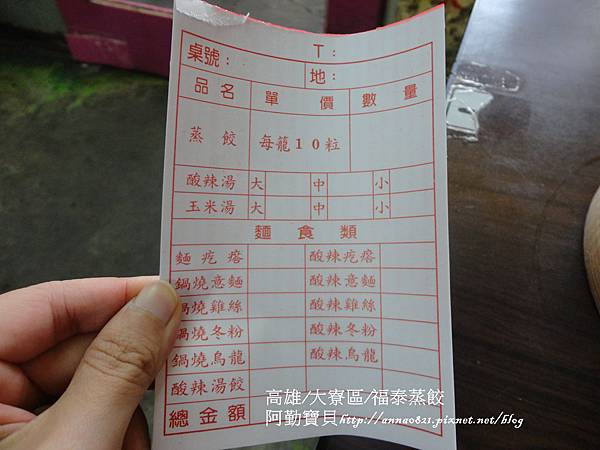 桌號： T：
地：
品名 單價 數量
蒸餃 每籠10粒
酸辣湯 大 中 小
玉米湯 大 中 小
麵食類
麵疙瘩 酸辣疙瘩
鍋燒意麵 酸辣意麵
鍋燒雞絲 酸辣雞絲
鍋燒冬粉 酸辣冬粉
鍋燒烏龍 酸辣烏龍
酸辣湯餃
總金額
高雄/大寮區/福泰蒸餃
阿勤寶貝http://anna0821.pixnet.net/blog